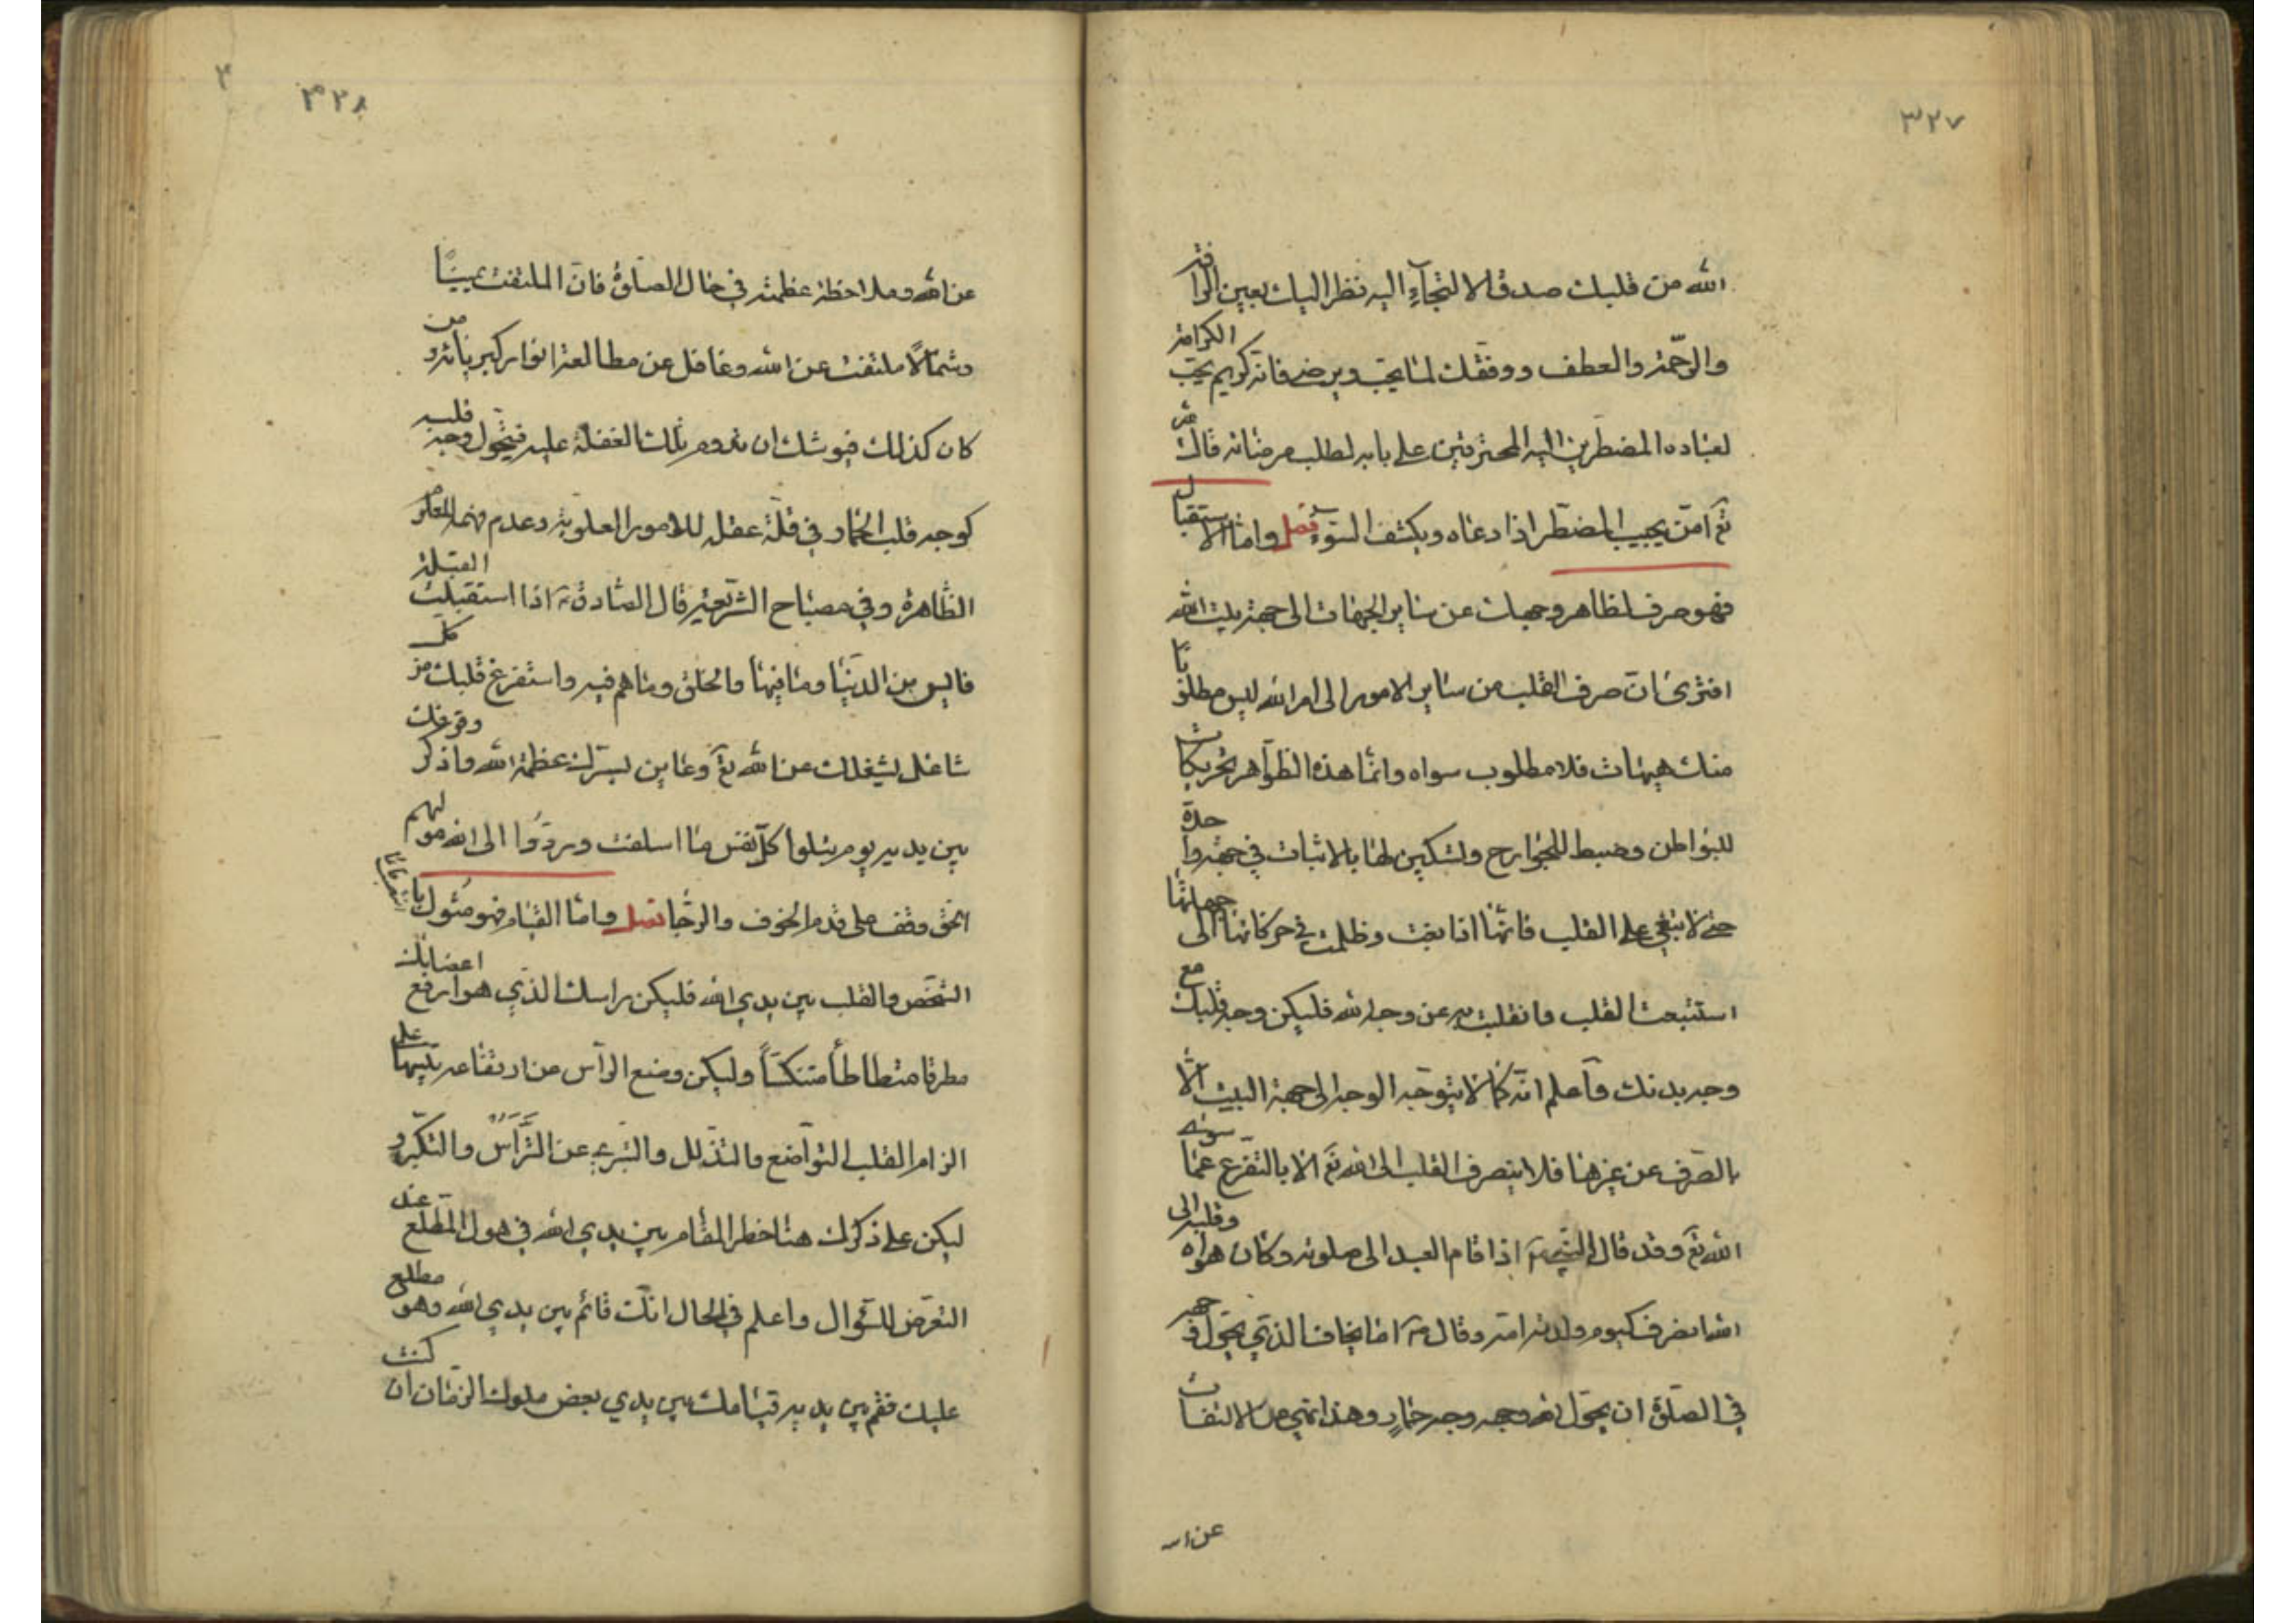 ٣٢٧
الله من قلبك صدق الالتجاء اليه نظر اليك بعين الرافة
والرّحمة والعطف ووفقك لما يحب ويرضى فانه كريم يحب الكرامة
لعباده المضطرين اليه المحترقين على بابه لطلب مرضاته قال الله
تع امّن يجيب المضطر اذا دعاه ويكشف السّوء فصل واما الاستقبال
فهو صرف لظاهر وجهك عن ساير الجهات الى جهة بيت الله
افترى انّ صرف القلب من ساير الامور الى امر الله ليس مطلوبا
منك هيهات فلا مطلوب سواه وانما هذه الظواهر تحريكات
للبواطن وضبط للجوارح وتسكين لها بالاثبات في جهة واحدة
حتى لا تبغى على القلب فانها اذا بغت وظلمت في حركاتها الى جهاتها
استتبعت القلب وانقلبت به عن وجه الله فليكن وجه قلبك مع
وجه بدنك واعلم انه كما لا يتوجّه الوجه الى جهة البيت الا
بالصّرف عن غيرها فلا ينصرف القلب الى الله تع الا بالتفرغ عمّا سوى
الله تع وقد قال النبي ص اذا قام العبد الى صلوته وكان هواه وقلبه الى
الله انصرف كيوم ولدته امه وقال ص اما يخاف الذي يحوّل وجهه
في الصّلوة ان يحوّل الله وجهه وجه حمار وهذا نهي عن الالتفات
عن ال
٣٢٨
عن الله وملاحظة عظمته في حال الصلوة فانّ الملتفت يمينًا
وشمالًا ملتفت عن الله وغافل عن مطالعة انوار كبريائه ومن
كان كذلك فيوشك ان تدوم تلك الغفلة عليه فيتحول وجه قلبه
كوجه قلب الحمار في قلّة عقله للامور العلوية وعدم فهمه للمعارف
الظاهرة وفي مصباح الشّريعة قال الصادق ع اذا استقبلت القبلة
فايس من الدّنيا وما فيها والخلق وما هم فيه واستفرغ قلبك من كل
شاغل يشغلك عن الله تع وعاين بسرّك عظمة الله واذكر وقوفك
بين يديه يوم تبلوا كلّ نفس ما اسلفت وردّوا الى الله مولهم
الحق وقف على قدم الخوف والرجا فصل واما القيام فهو مثول با
الشّخص والقلب بين يدي الله فليكن راسك الذي هو ارفع اعضائك
مطرقا متطاطأ متنكسًا وليكن وضع الرأس عن ارتفاعه تنبيها على
الزام القلب التواضع والتذلل والتبرى عن التّرأس والتكبّر و
ليكن على ذكرك هنا خطر المقام بين يدي الله في هول المطّلع عند
التعرّض للسّؤال واعلم في الحال انّك قائم بين يدي الله وهو مطلع
عليك فقم بين يديه قيامك بين يدي بعض ملوك الزمان ان كنت